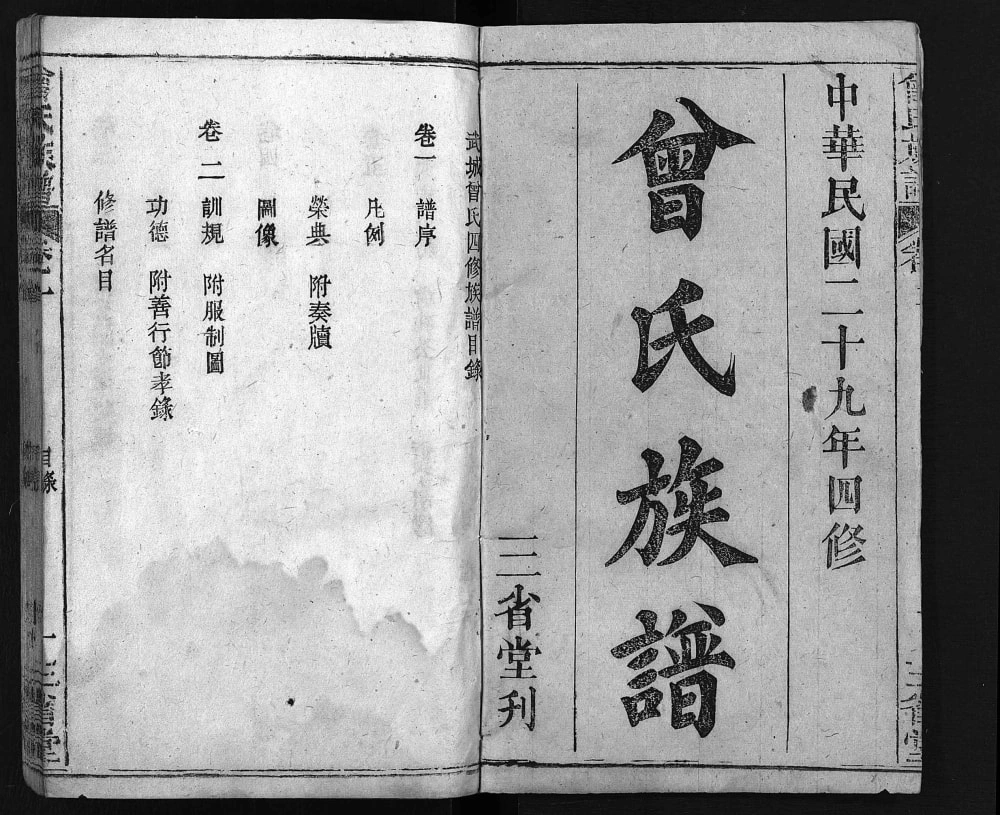 中華民國二十九年四修
曾氏族譜
三省堂刊
武城曾氏四修族譜目錄
卷一 譜序
凡例
榮典 附奏牘
圖像
卷二 訓規 附服制圖
功德 附善行節孝錄
修譜名目
目錄
三省堂